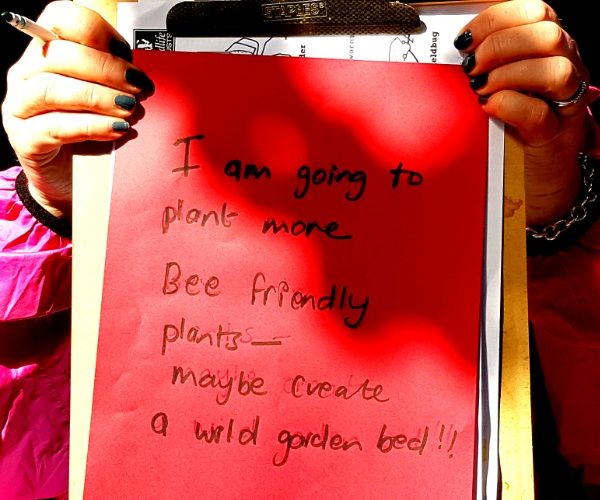 STAPLES
eldbug
I am going to
plant more
Bee friendly
plants—
maybe create
a wild garden bed!!